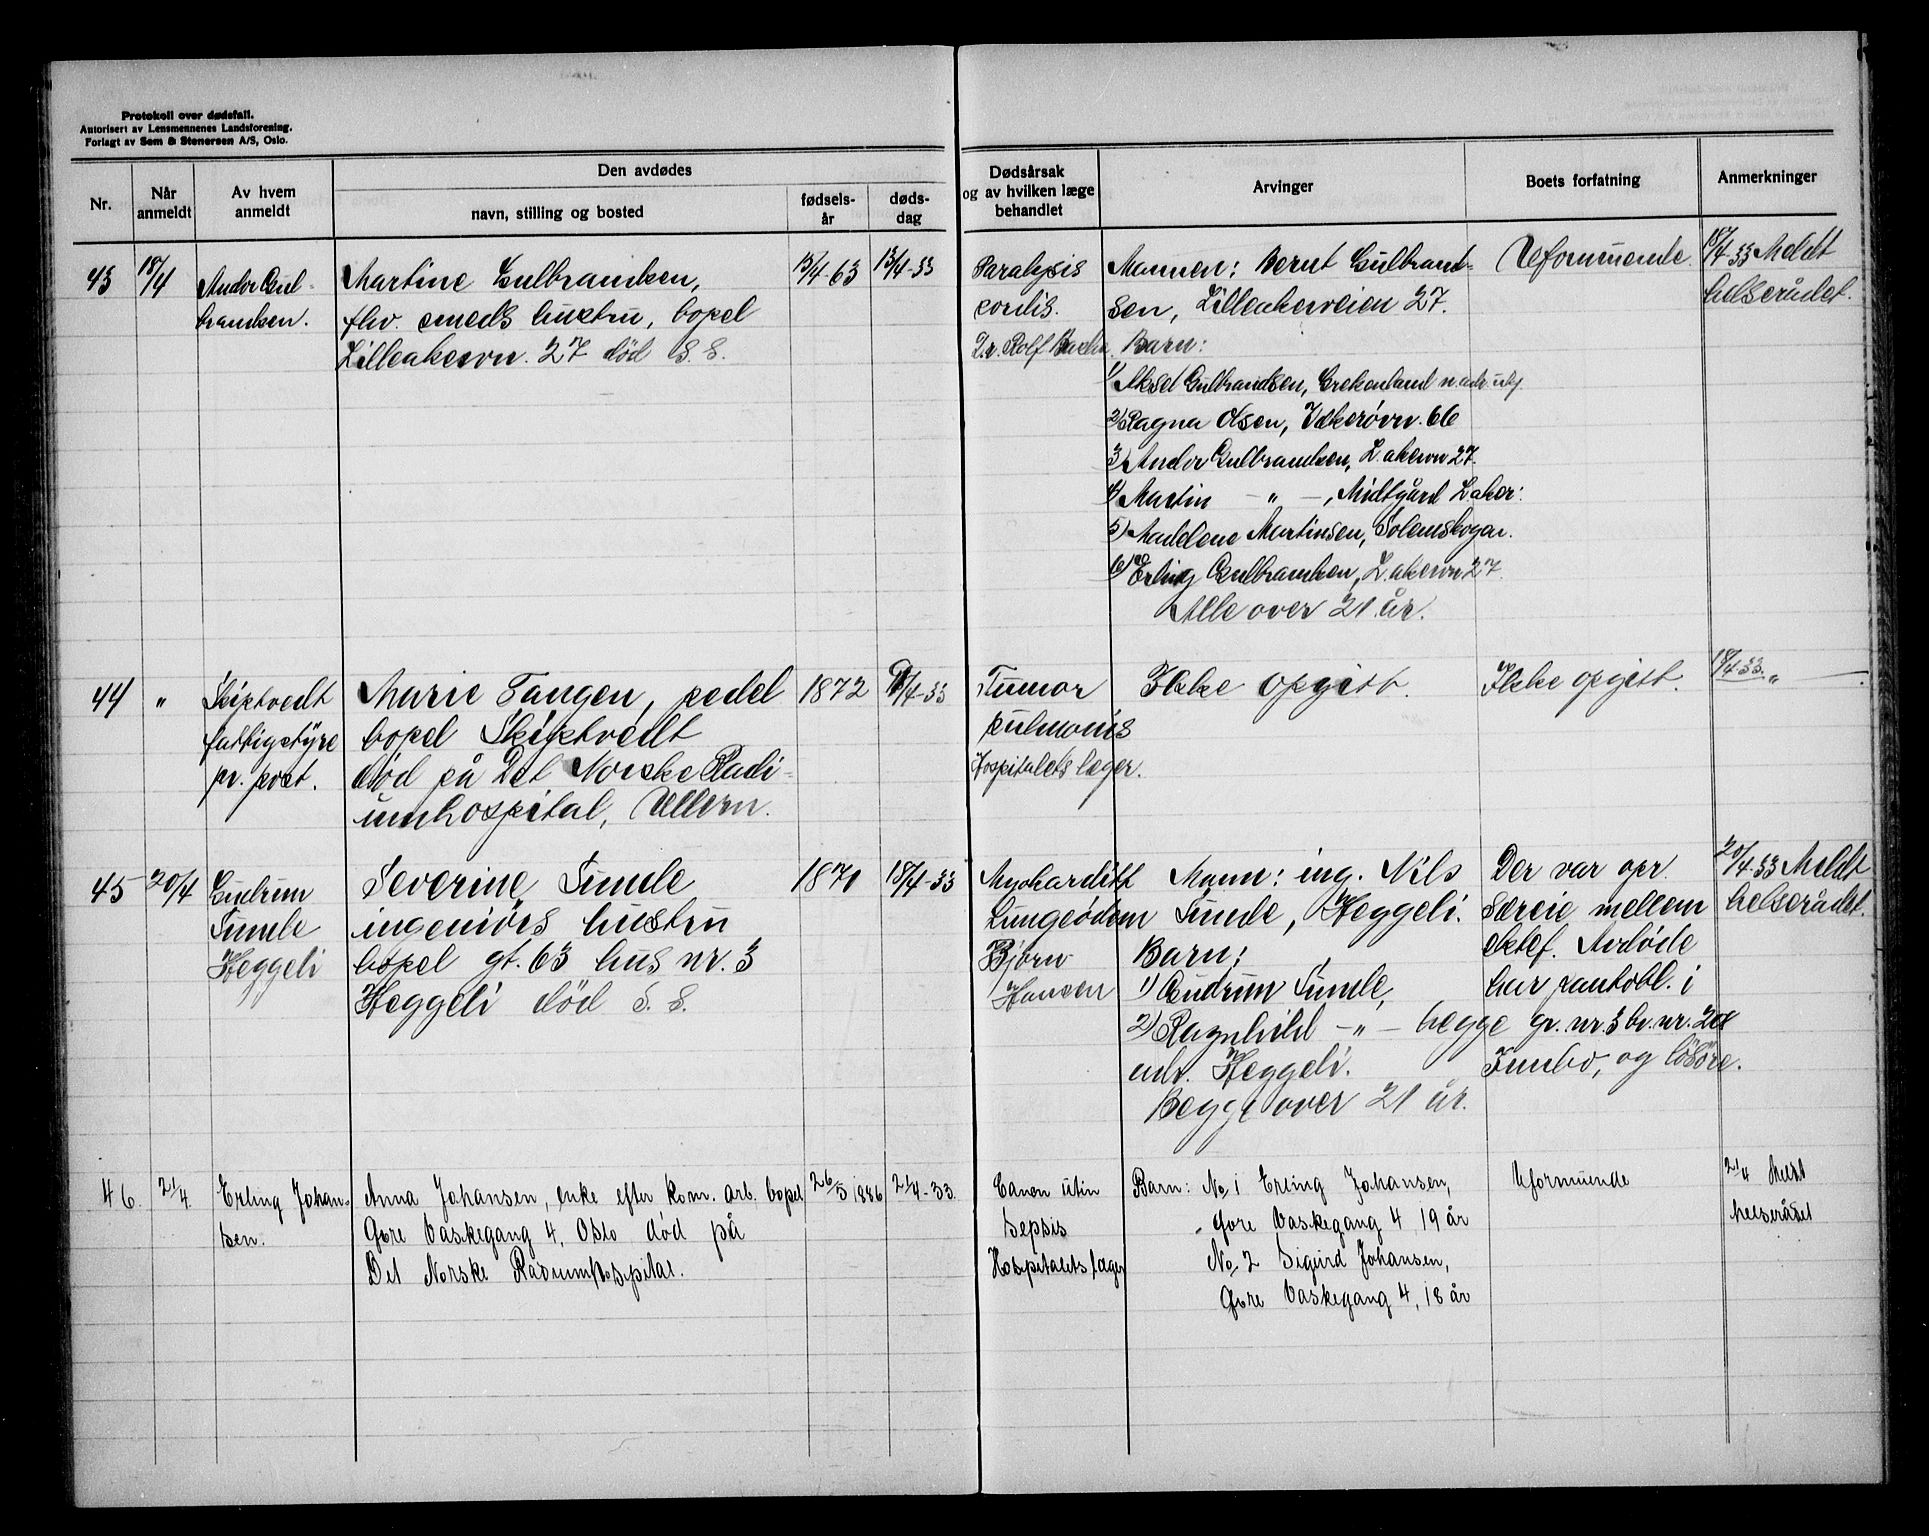 Protokoll over dødsfall.
Autorisert av Lensmennenes Landsforening.
Forlagt av Sem & Stenersen A/S, Oslo.
Nr.
Når
anmeldt
Av hvem
anmeldt
Den avdødes
navn, stilling og bosted
fødsels-
år
døds-
dag
Dødsårsak
og av hvilken læge
behandlet
Arvinger
Boets forfatning
Anmerkninger
43
18/4
Andor Gul-
brandsen.
Martine Gulbrandsen,
fhv. smeds hustru, bopel
Lilleakervn. 27 død s. s.
13/4-63
13/4-33
Paralysis
cordis.
Dr. Rolf
Mannen: Bernt Gulbrand-
sen, Lilleakerveien 27.
Barn:
1) Aksel Gulbrandsen, Grekenland n. adr. ukj.
2) Ragna Olsen, Vækerøvn. 66
3) Andor Gulbrandsen, L.akervn 27.
4) Martin — „ —, Midtgård L.aker.
5) Maddene Martinsen, Solemskogen.
6) Erling Gulbrandsen, L.akervn 27.
Alle over 21 år.
Uformuende.
18/4-33 Meldt
helserådet.
44
„
Skiptvedt
fattigstyre
pr. post.
Marie Tangen,
bopel Skiptvedt
død på Det Norske Radi-
umhospital, Ullern.
1872
/4-33
Tumor
pulmonis
Hospitalets læger.
Ikke opgitt.
Ikke opgitt.
18/4-33. „ —
45
20/4
Gudrun
Sunde
Heggeli
Severine Sunde
ingeniørs hustru
bopel gt. 63 hus nr. 3
Heggeli død s. s.
1871
18/4-33
Myokarditt
Lungeødem
Bjørn
Hansen
Mann: ing. Nils
Sunde, Heggeli.
Barn:
1) Gudrun Sunde,
2) Ragnhild — „ — begge
adr. Heggeli.
Begge over 21 år.
Der var opr.
Særeie mellem
ektef. Avdøde
har pantobl. i
gr. nr. 3 br. nr.
Innbo, og løsøre.
20/4-33 Meldt
helserådet.
46.
21/4.
Erling Johan-
sen.
Anna Johansen, enke efter kom. arb. bopel
Øvre Vaskegang 4, Oslo død på
Det Norske Radiumhospital.
26/5 1886
21/4-33.
Cancer utin
Sepsis
Hospitalets læger
Barn: No 1 Erling Johansen,
Øvre Vaskegang 4, 19 år
No 2 Sigurd Johansen,
Øvre Vaskegang 4, 18 år
Uformuende
21/4 Meldt
helserådet